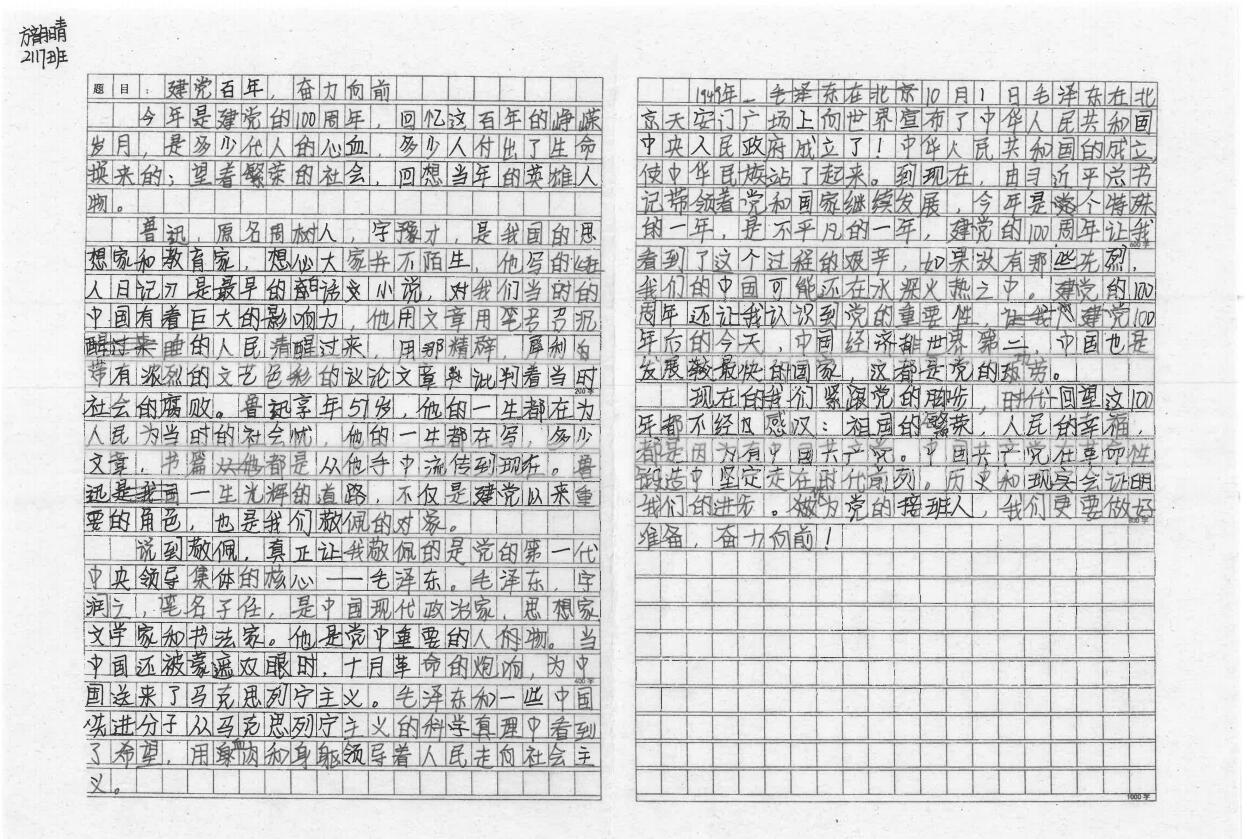 方韵晴
2117班
题目：建党百年，奋力向前
今年是建党的100周年，回忆这百年的峥嵘
岁月，是多少代人的心血，多少人付出了生命
换来的；望着繁荣的社会，回想当年的英雄人
物。
鲁迅，原名周树人，字豫才，是我国的思
想家和教育家，想必大家并不陌生，他写的《狂
人日记》是最早的白话文小说，对我们当时的
中国有着巨大的影响力，他用文章用笔号召沉
的人民清醒过来，用那精辟，犀利句
带有浓烈的文艺色彩的议论文章批判着当时
社会的腐败。鲁迅享年57岁，他的一生都在为
人民为当时的社会忧，他的一生都在写，多少
文章，书篇都是从他手中流传到现在。鲁
迅一生光辉的道路，不仅是建党以来重
要的角色，也是我们敬佩的对家。
说到敬佩，真正让我敬佩的是党的第一代
中央领导集体的核心——毛泽东。毛泽东，字
润之，笔名子任，是中国现代政治家，思想家
文学家和书法家。他是党中重要的人物。当
中国还被蒙遮双眼时，十月革命的炮响，为中
国送来了马克思列宁主义。毛泽东和一些中国
先进分子从马克思列宁主义的科学真理中看到
了希望，用血肉和身躯领导着人民走向社会主
义。
1949年毛泽东在北京10月1日毛泽东在北
京天安门广场上向世界宣布了中华人民共和国
中央人民政府成立了！中华人民共和国的成立，
使中华民族站了起来。到现在，由习近平总书
记带领着党和国家继续发展，今年是个特殊
的一年，是不平凡的一年，建党的100周年让我
看到了这个过程的艰辛，如果没有那些先烈，
我们的中国可能还在水深火热之中。建党的100
周年还让我认识到党的重要性，建党100
年后的今天，中国经济排世界第二，中国也是
发展最快的国家，这都是党的功劳。
现在的我们紧跟党的脚步，时代回望这100
年都不经感叹：祖国的繁荣，人民的幸福，
都是因为有中国共产党。中国共产党在革命性
锻造中坚定走在时代前列。历史和现实会证明
我们的进步。做为党的接班人，我们更要做好
准备，奋力向前！
200字
400字
600字
800字
1000字